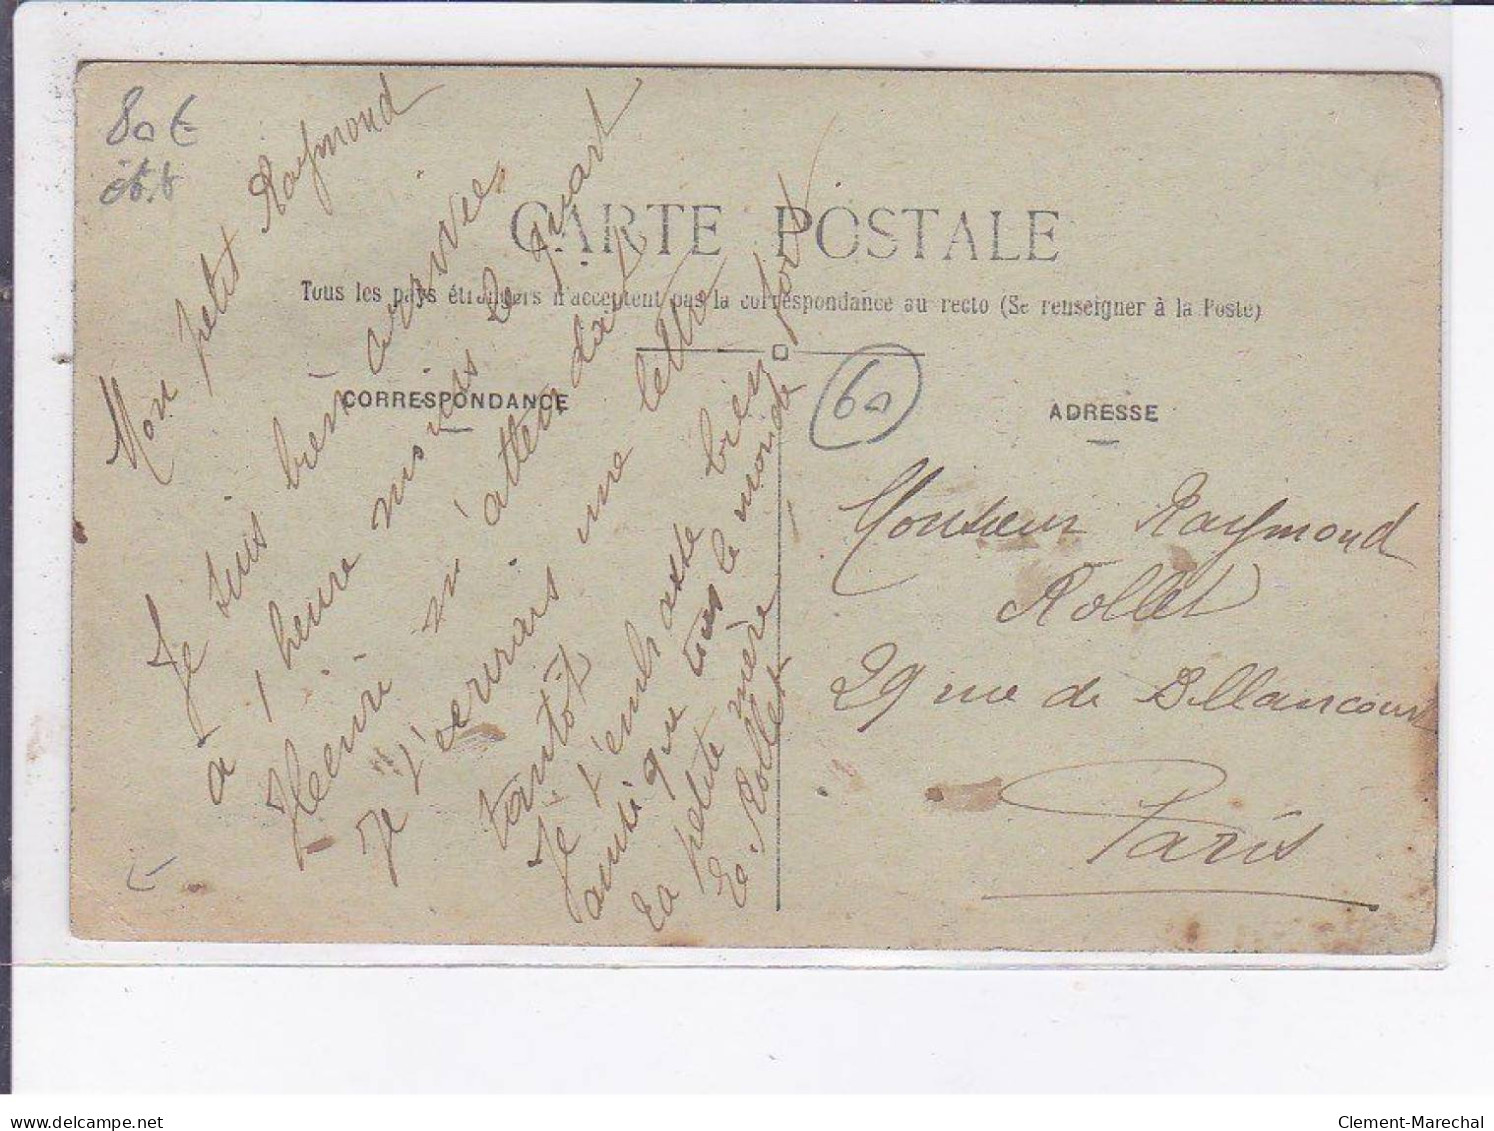 80 €
Mon petit Raymond
Je suis bien arrivée
à 1 heure moins le quart
Henri m'attendait
Je t'enverrais une lettre
tantôt
Je t'embrasse bien fort
ainsi que tous le monde
ta petite mère
R. Rollet
CARTE POSTALE
Tous les pays étrangers n'acceptent pas la correspondance au recto (Se renseigner à la Poste)
CORRESPONDANCE
60
ADRESSE
Monsieur Raymond
Rollet
29 rue de Billancourt
Paris
delcampe.net
Clement-Marechal